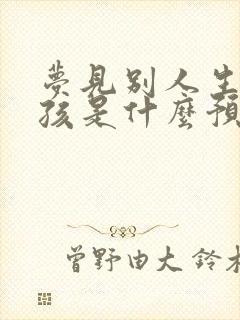 夢見別人生
孩是什麼預
曾野由大 鈴木